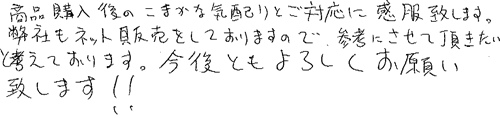 商品購入後のこまかな気配りとご対応に感服致します。
弊社もネット販売をしておりますので、参考にさせて頂きたい
と考えております。今後ともよろしくお願い
致します!!